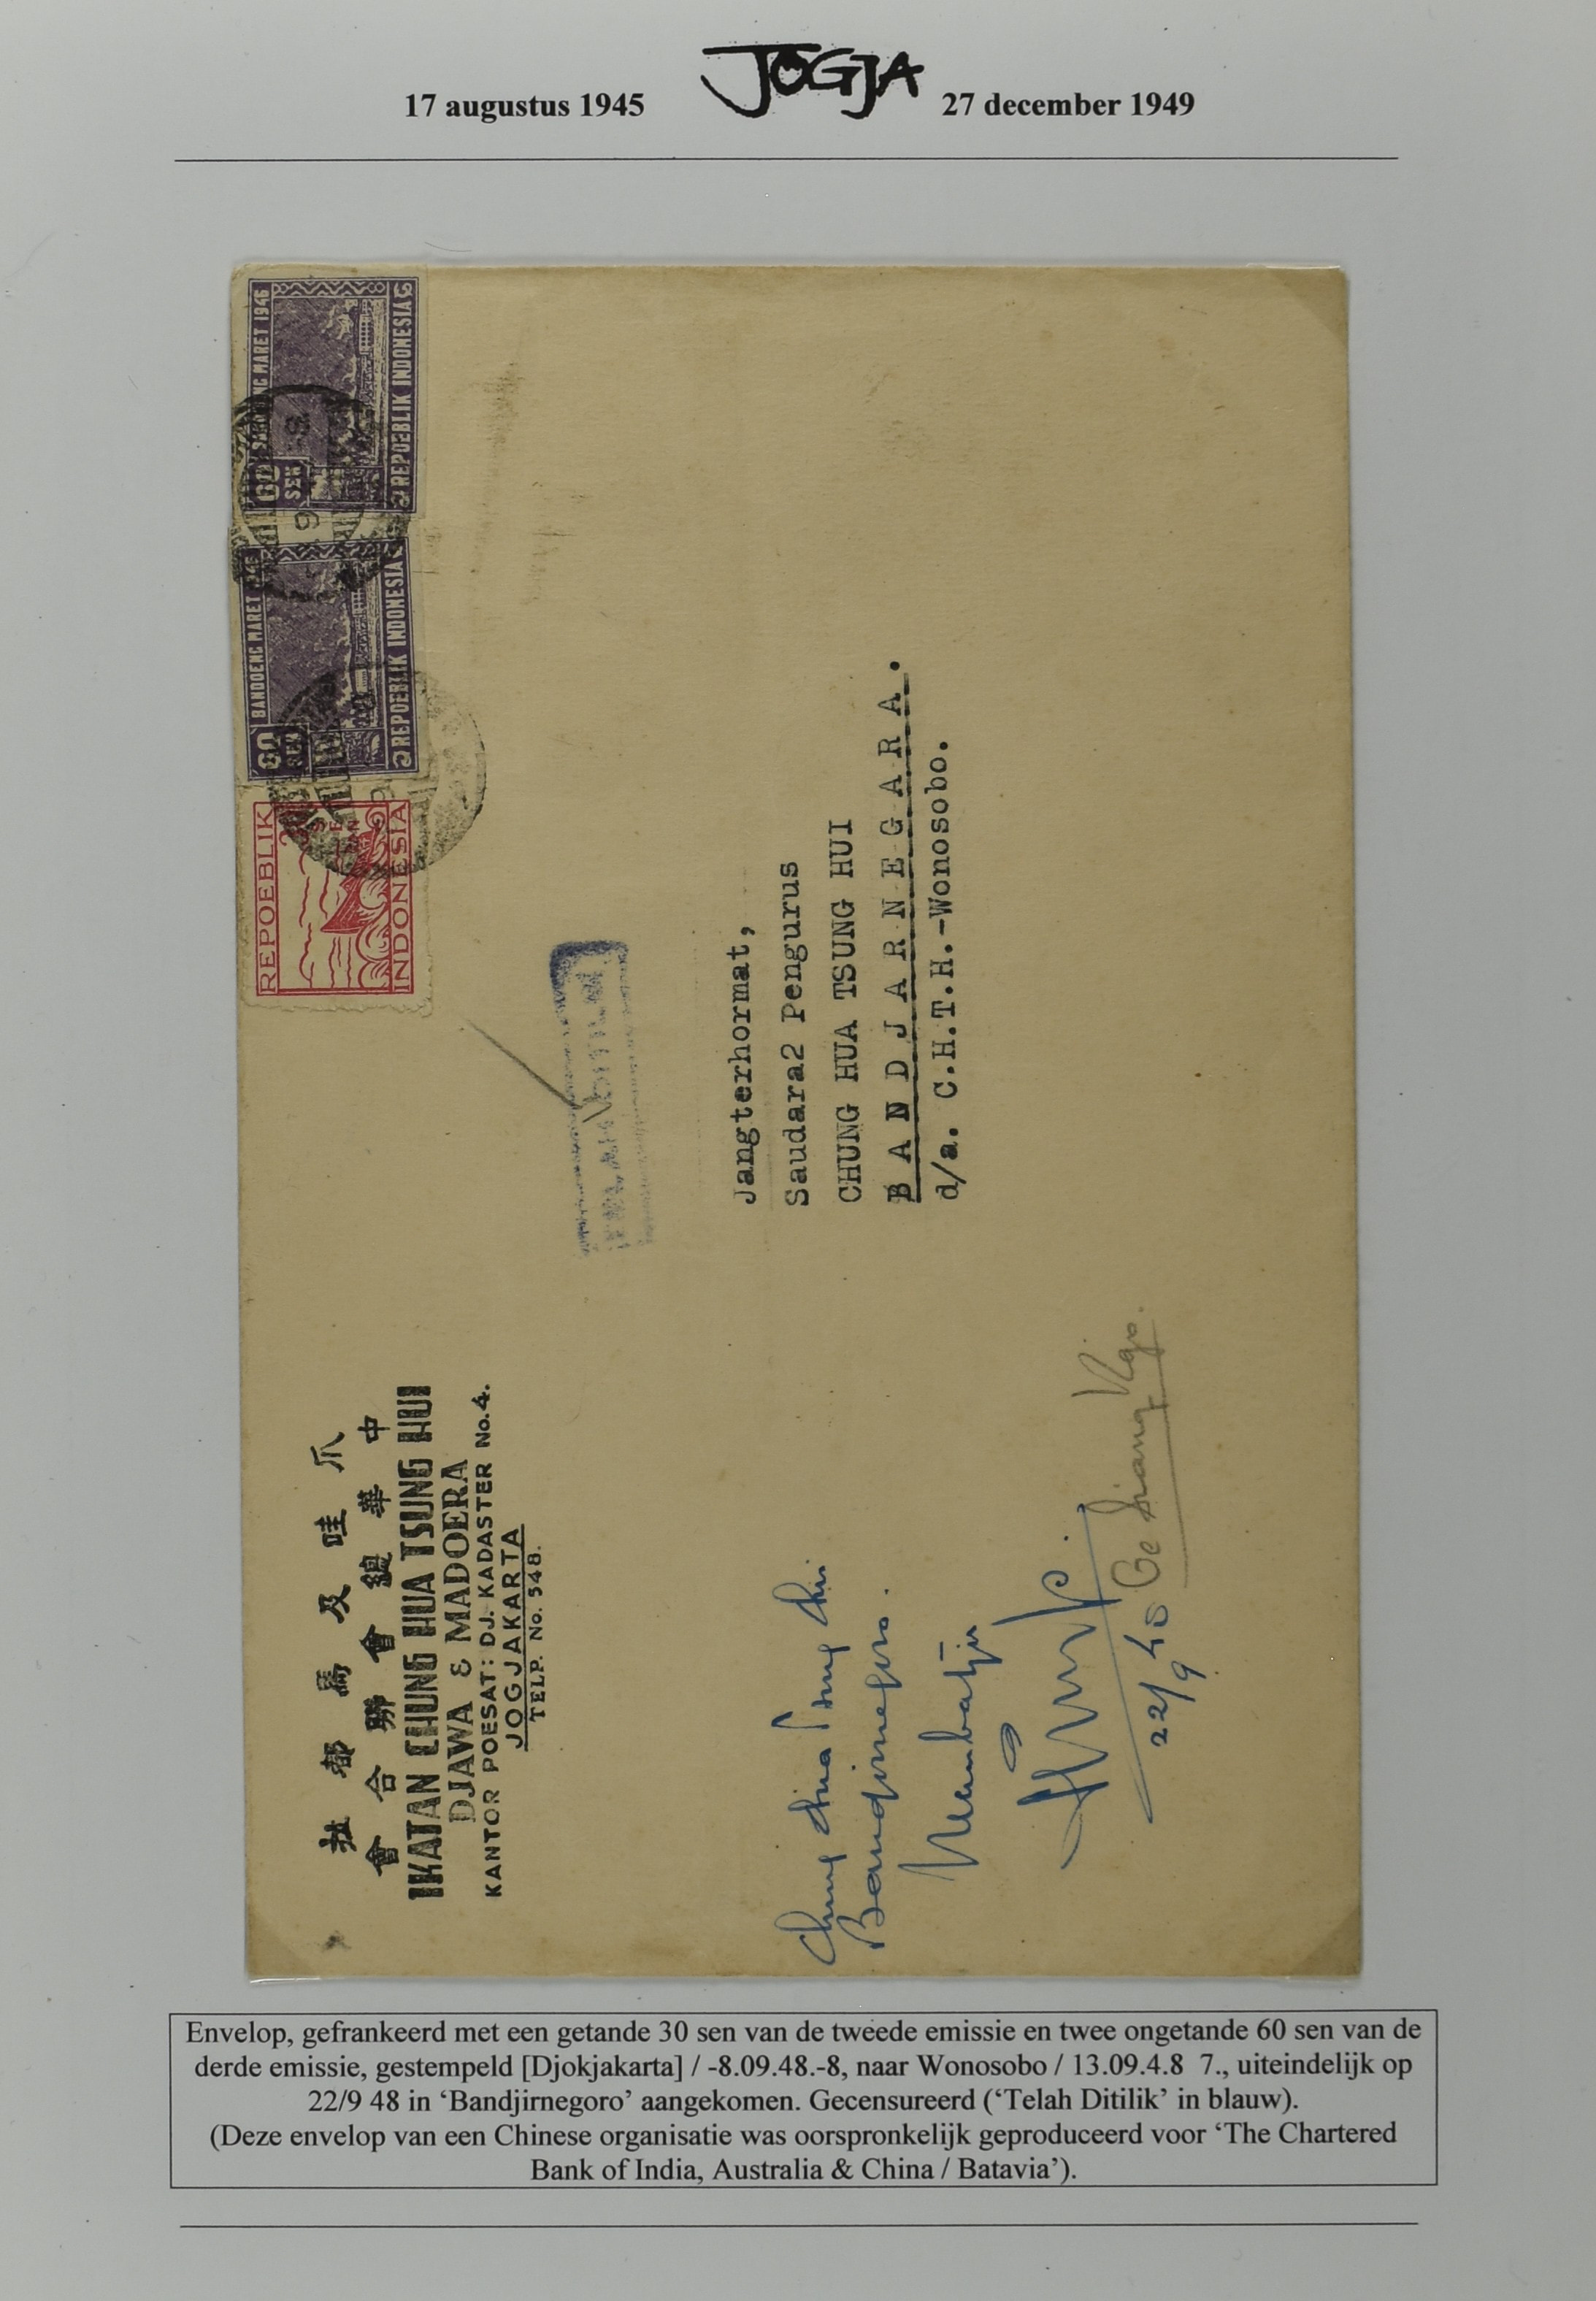 17 augustus 1945
JOGJA
27 december 1949
BANDOENG MARET 1946
60
SEN
REPOEBLIK INDONESIA
BANDOENG MARET 1946
60
SEN
REPOEBLIK INDONESIA
REPOEBLIK
INDONESIA
爪哇及馬都拉
中華總會聯合會
IKATAN CHUNG HUA TSUNG HUI
DJAWA & MADOERA
KANTOR POESAT: DJ. KADASTER No.4.
JOGJAKARTA
TELP. No. 548.
Jangterhormat,
Saudara2 Pengurus
CHUNG HUA TSUNG HUI
BANDJARNEGARA.
d/a. C.H.T.H.-Wonosobo.
Chung Hua Tsung Hui
Bandjirnegoro.
22/9 48
Envelop, gefrankeerd met een getande 30 sen van de tweede emissie en twee ongetande 60 sen van de
derde emissie, gestempeld [Djokjakarta] / -8.09.48.-8, naar Wonosobo / 13.09.4.8 7., uiteindelijk op
22/9 48 in ‘Bandjirnegoro’ aangekomen. Gecensureerd (‘Telah Ditilik’ in blauw).
(Deze envelop van een Chinese organisatie was oorspronkelijk geproduceerd voor ‘The Chartered
Bank of India, Australia & China / Batavia’).